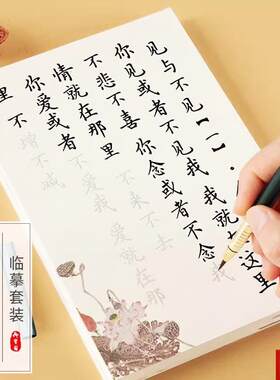 见与不见【一】·
你见或者不见我 我就在这里
不悲不喜 你念或者不念我
情就在那里 不来不去
你爱或者不爱我 爱就在那
里 不增不减
临摹套装